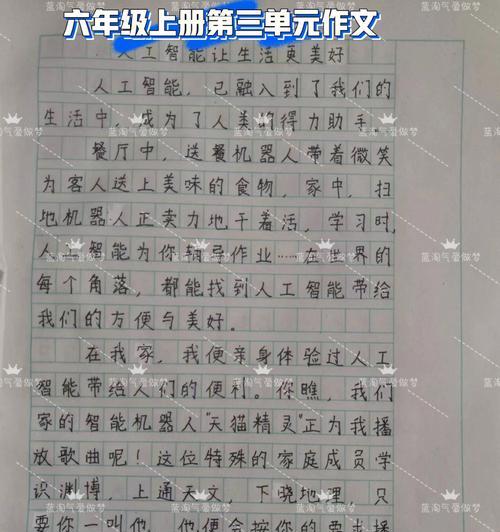 六年级上册第三单元作文
人工智能让生活更美好
人工智能，已融入到了我们的
生活中，成为了人类的得力助手。
餐厅中，送餐机器人带着微笑
为客人送上美味的食物，家中，扫
地机器人正卖力地干着活，学习时，
人工智能为你辅导作业……在世界的
每个角落，都能找到人工智能带给
我们的方便与美好。
在我家，我便亲身体验过人工
智能带给人们的便利。你瞧，我们
家的智能机器人“天猫精灵”正为我播
放歌曲呢！这位特殊的家庭成员学
识渊博，上通天文，下晓地理，只
要你一叫他，他便会按你的要求播
蓝淘气爱做梦